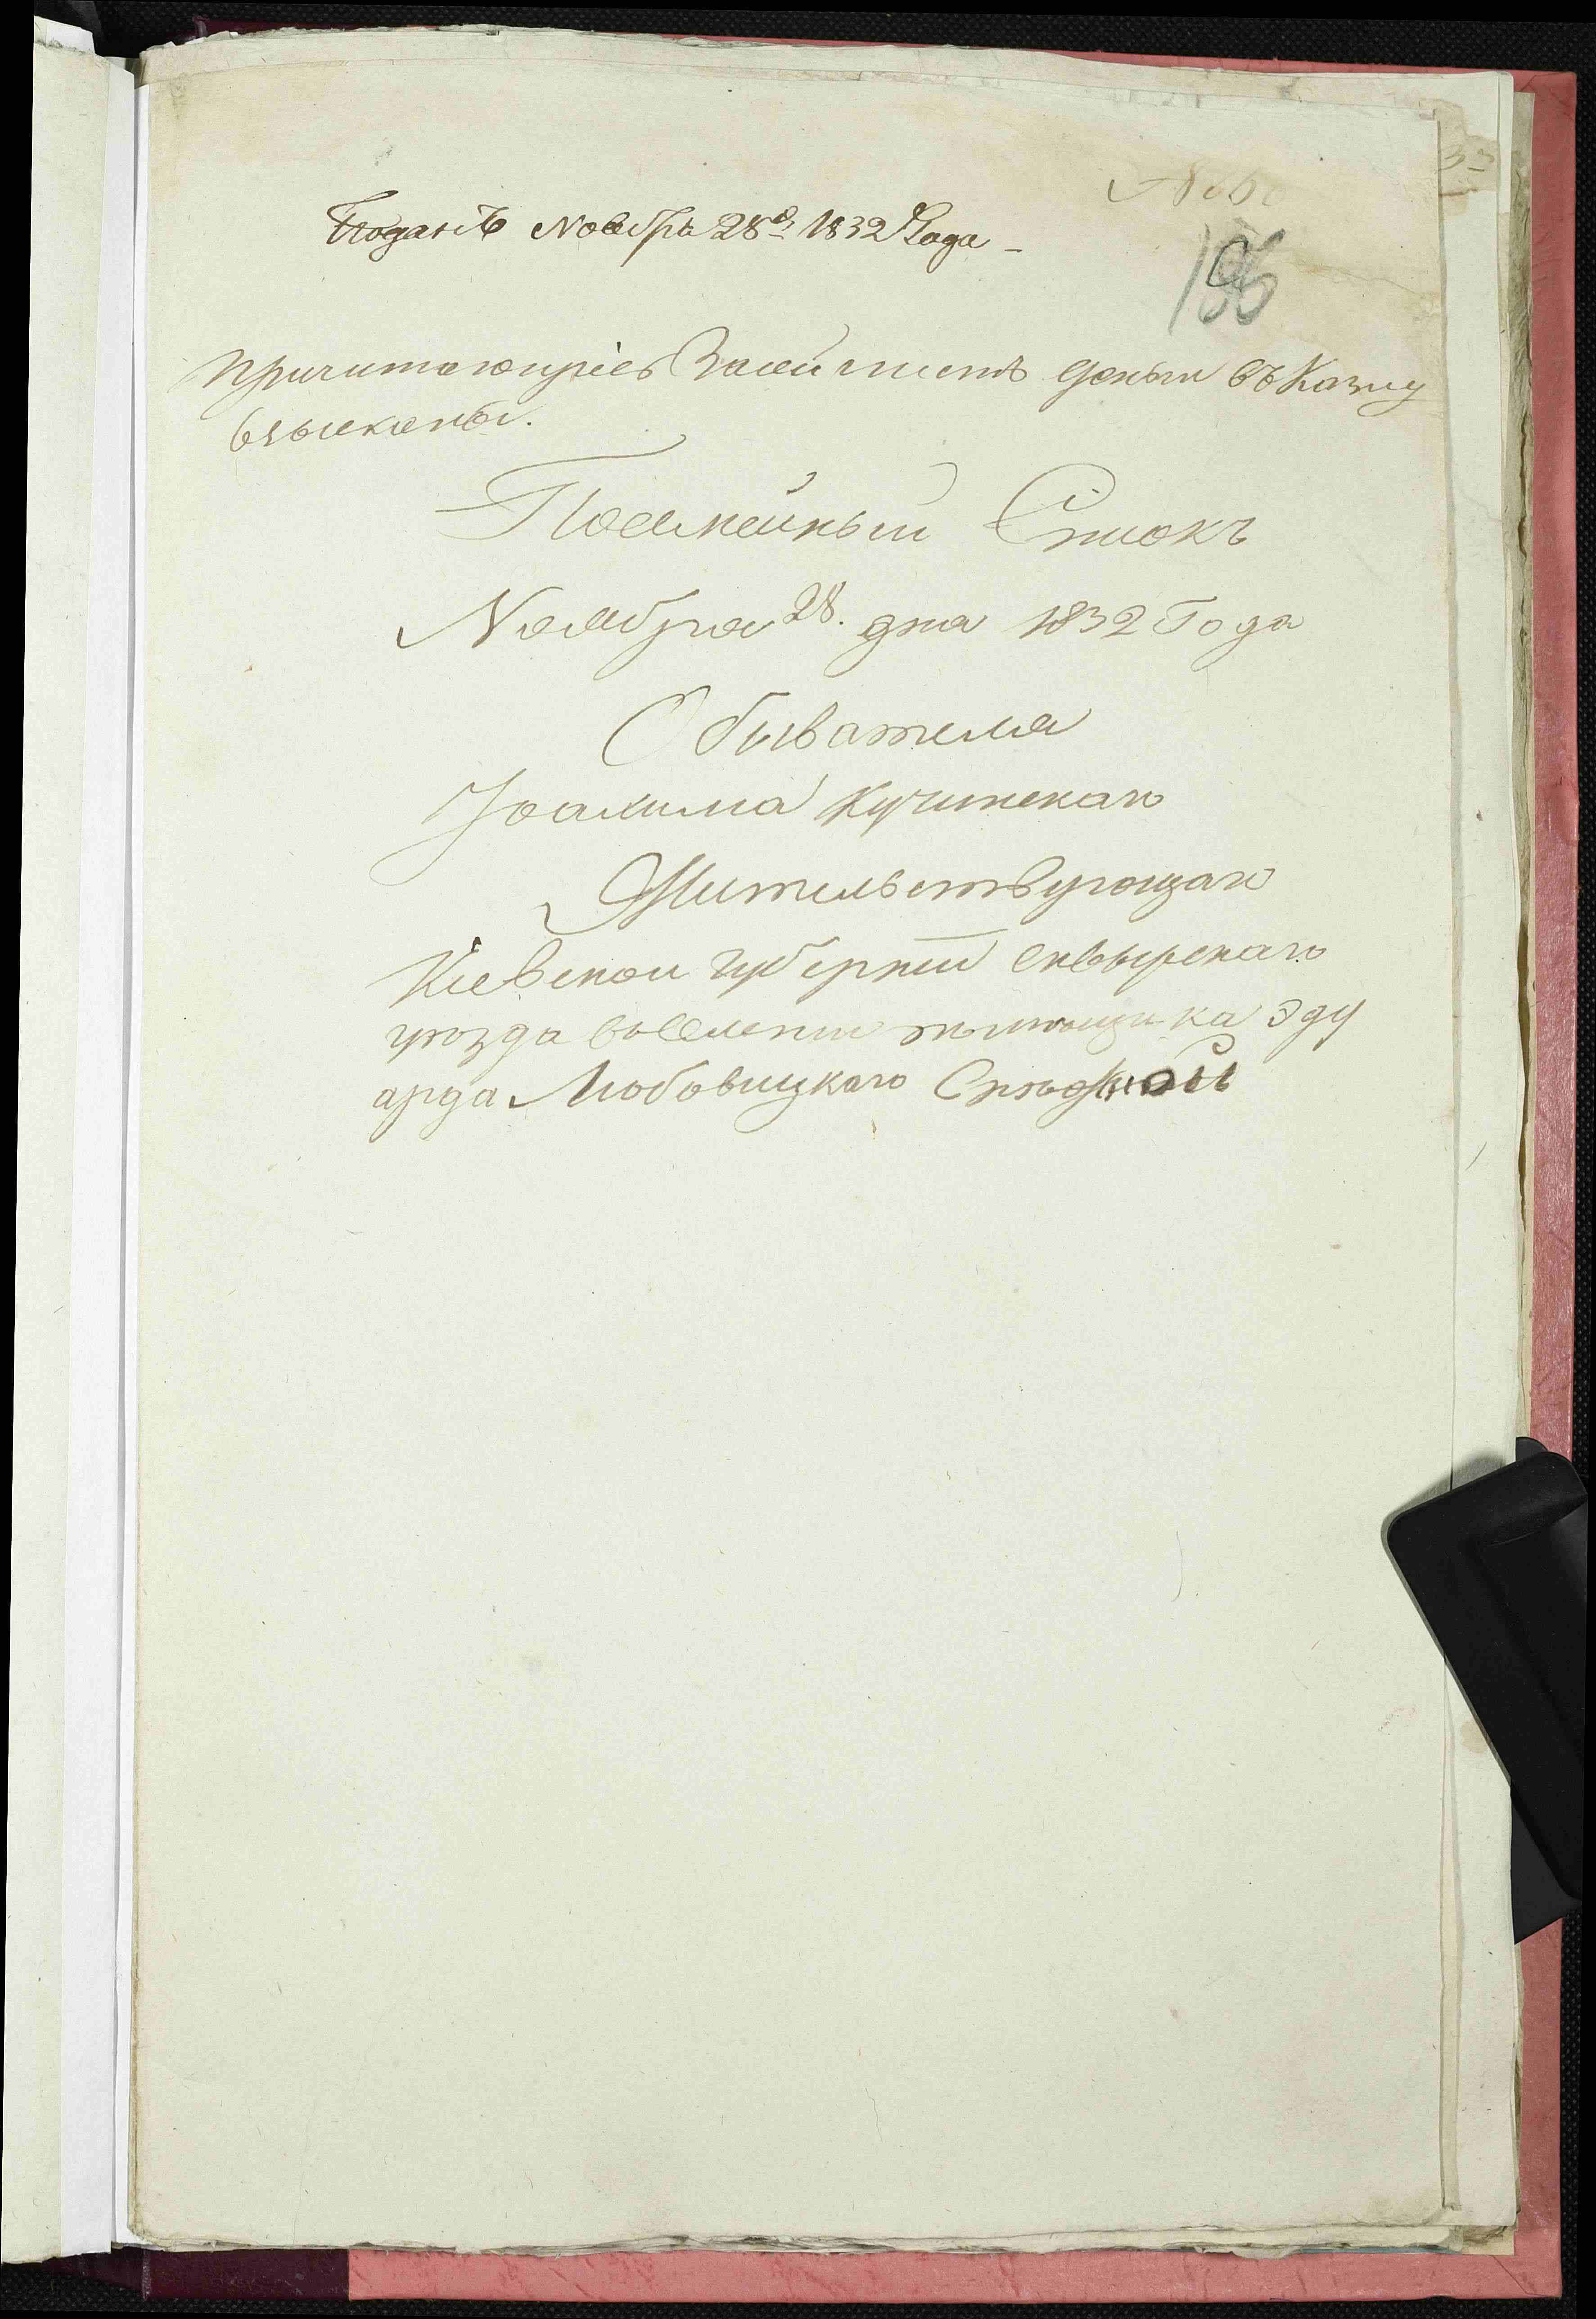 Поданъ Ноября 28го 1832 Года
196
причитающіесь За сей листъ деньги въ Казну
взысканы.
Посемейный Списокъ
Ноября 28. дня 1832 Года
Обывателя
Іоахима Кучинскаго
Жительствующаго
Кіевской губерніи Сквырскаго
уѣзда въ селеніи помещика Эду
арда Любовицкаго